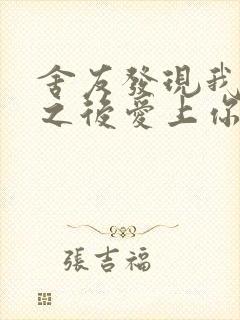 舍友發現我
之後愛上你
張吉福